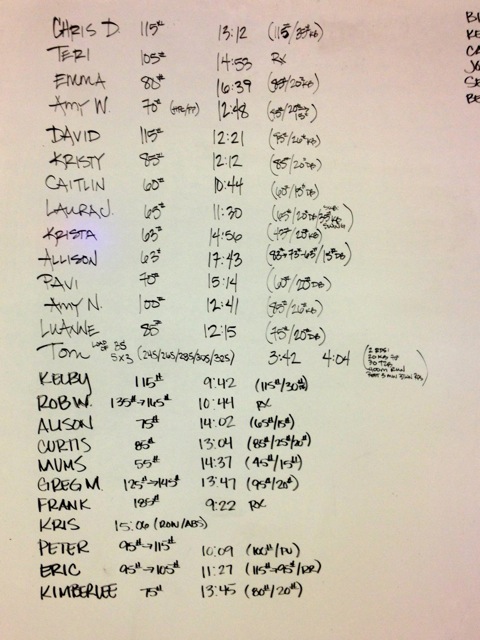 CHRIS D. 115# 13:12 (115/35#KB)
TERI 105# 14:53 RX
EMMA 80# 16:39 (85#/20#KB)
AMY W. 70# 12:48
DAVID 115# 12:21 (95#/26#KB)
KRISTY 85# 12:12 (85#/20#DB)
CAITLIN 60# 10:44 (60#/15#DB)
LAURA J. 65# 11:30
KRISTA 63# 14:56
ALLISON 63# 17:43
PAVI 70# 15:14 (60#/20#DB)
AMY N. 100# 12:41 (85#/26#KB)
LUANNE 80# 12:15 (75#/20#DB)
TOM 5x3 (245/265/285/305/325) 3:42 4:04
KELBY 115# 9:42 (115#/30#)
ROB W. 135#→165# 10:44 RX
ALISON 75# 14:02 (65#/15#)
CURTIS 85# 13:04 (85#/25#/20#)
MUMS 55# 14:37 (45#/15#)
GREG M. 125#→145# 13:47 (95#/20#)
FRANK 185# 9:22 RX
KRIS 15:06 (ROW/ABS)
PETER 95#→115# 10:09 (100#/PU)
ERIC 95#→105# 11:27 (115#→95#/RR)
KIMBERLEE 75# 13:45 (80#/20#)